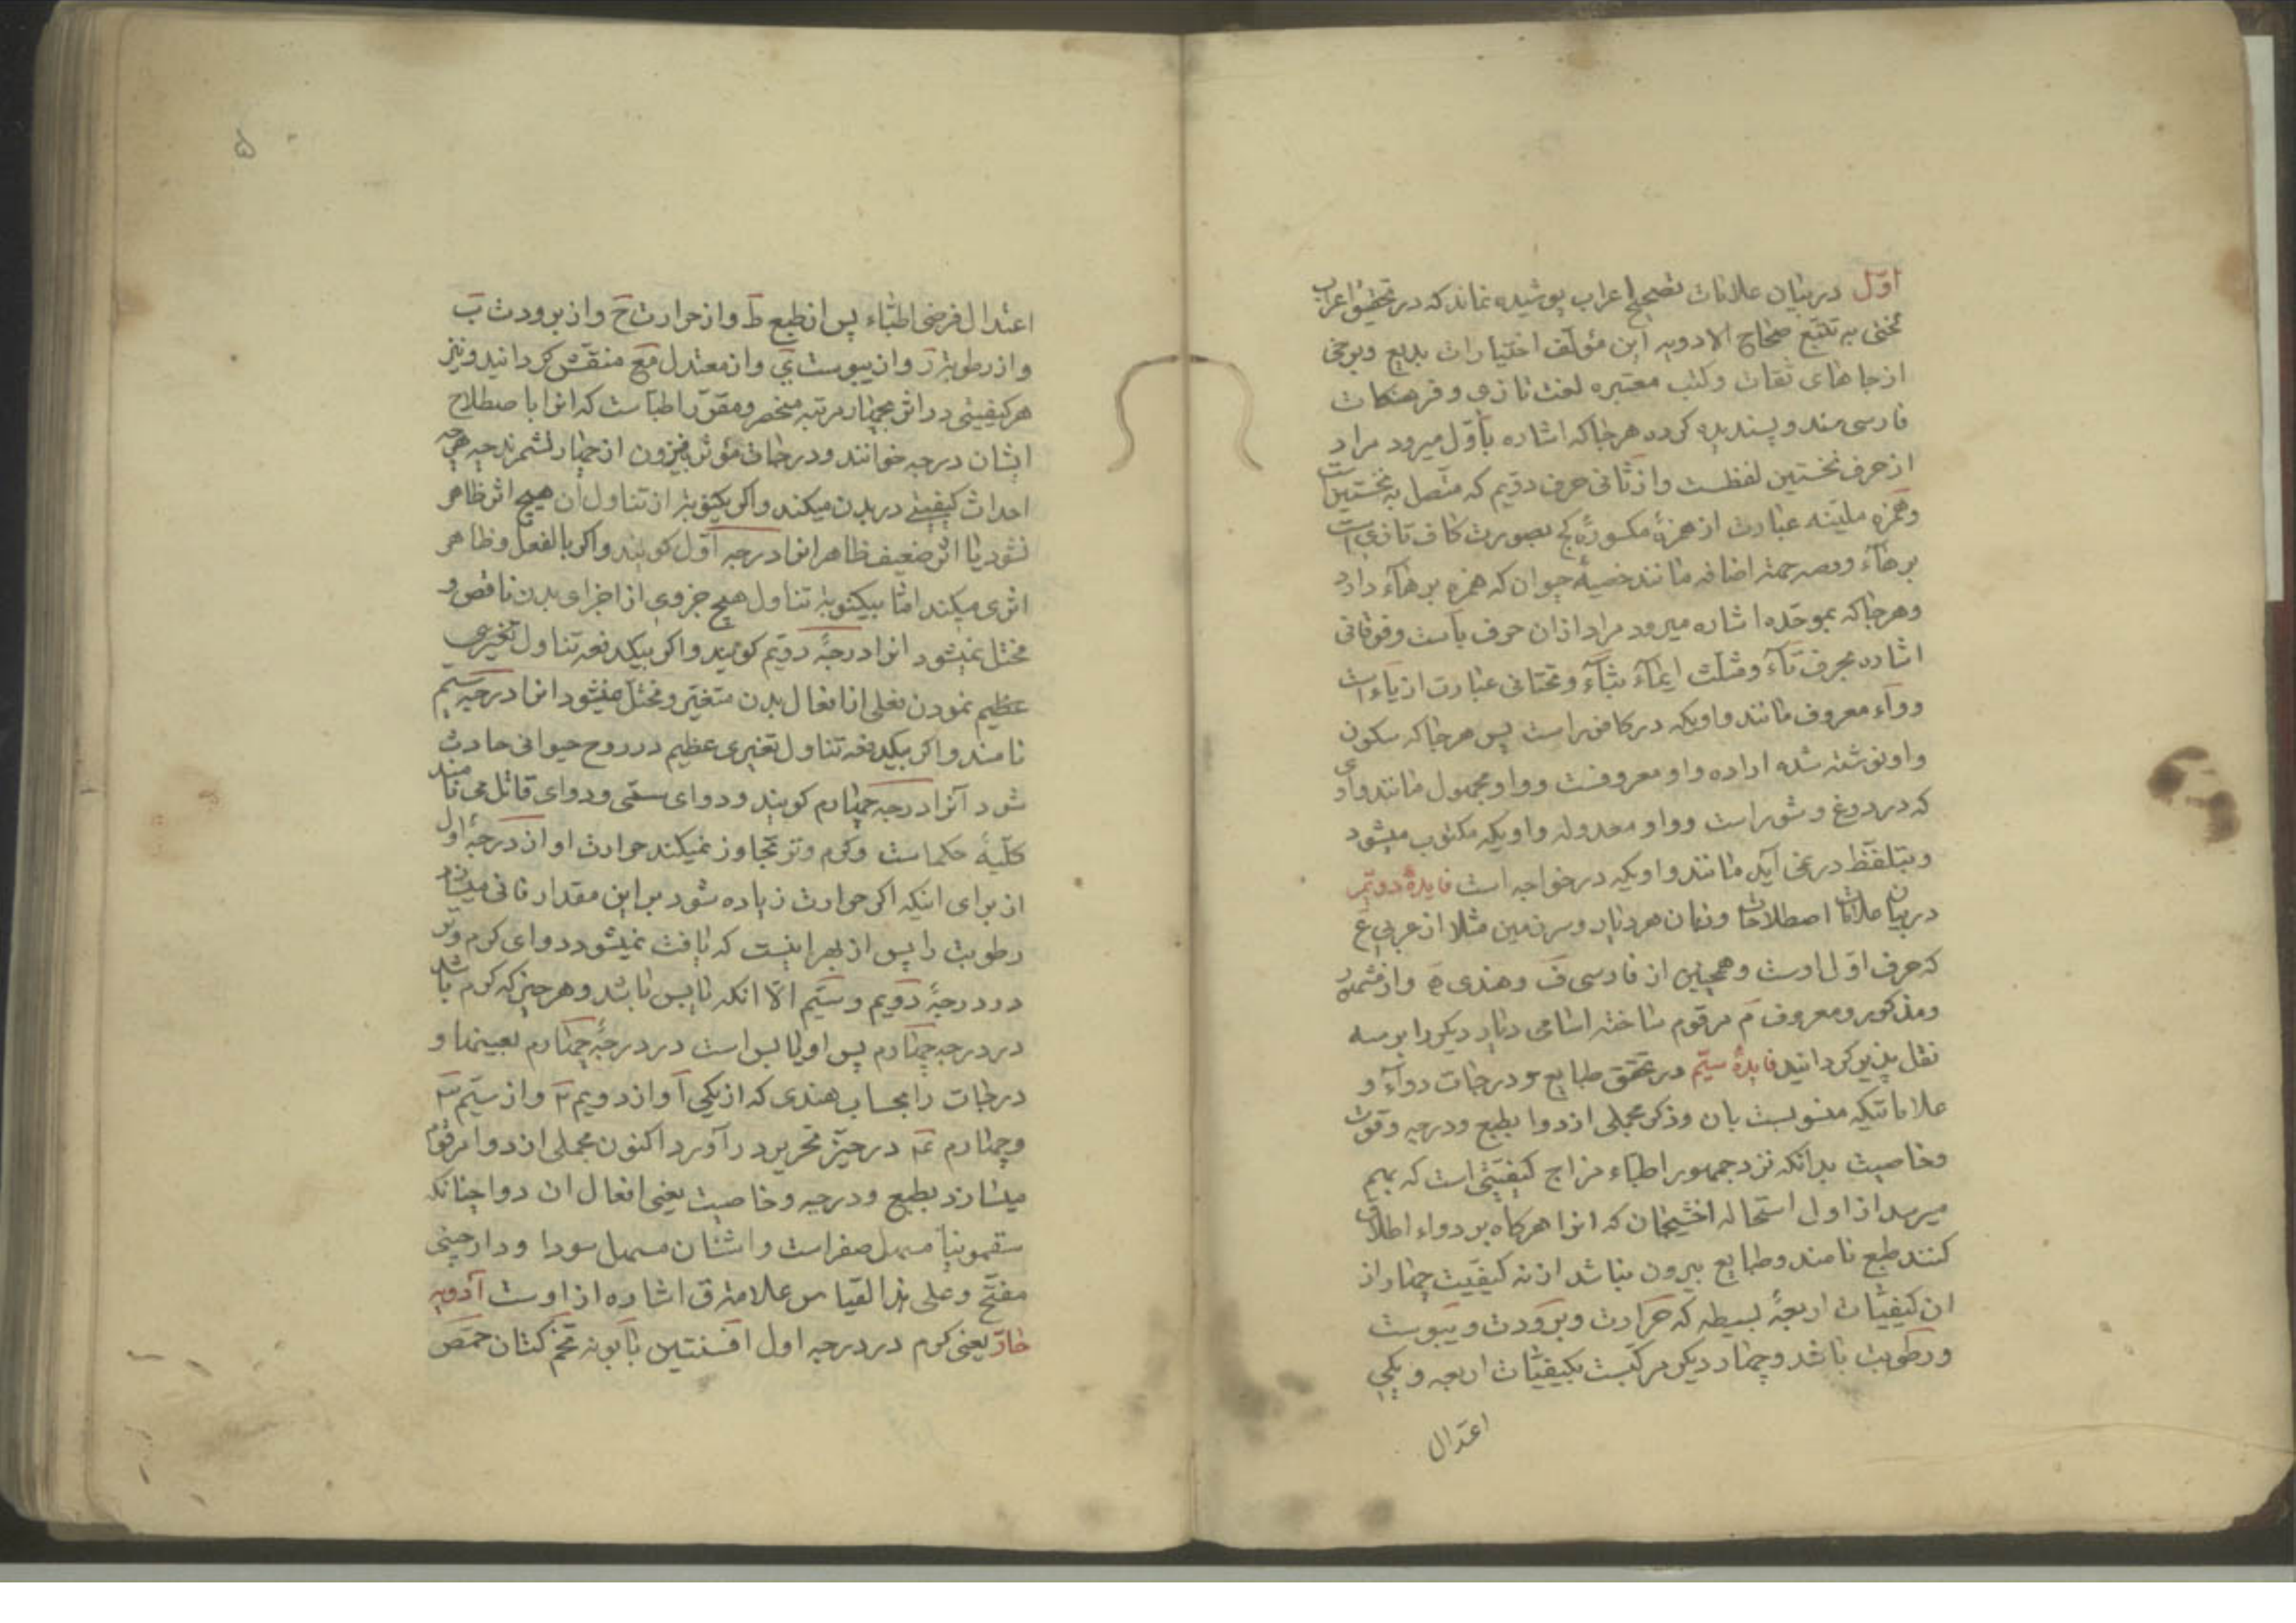 اول در بیان علامات تصحیح اعراب پوشیده نماند که در تحقیق اعراب
به تتبع صحاح الادویه این مؤلف اختیارات بدیع و برخی
از جاهای ثقات و کتب معتبره لغت تازی و فرهنگات
فارسی مند و پسندیده کرده هرجا که اشاره باول میرود مراد
از حرف نخستین لفظست و از ثانی حرف دویم که متصل به نخستین است
وهمزه ملینه عبارت از همزهٔ مکسورهٔ کج بصورت کاف تازی است
بر هاء اضافه مانند خصیهٔ حیوان که همزه بر هاء دارد
وهرجا که بموحده اشاره میرود مراد ازان حرف باست وفوقانی
اشاره بحرف تآء ومثلث ایمآء بثآء وتحتانی عبارت از یاء است
وواء معروف مانند واویکه در کافور است پس هرجا که سکون
واو نوشته شده اراده واو معروفست و واو مجهول مانند واوی
که در دروغ و شور است و واو معدوله واویکه مکتوب میشود
وبتلفظ در نمی آید مانند واویکه در خواجه است فایدهٔ دویم
در بیان علامات اصطلاحات وزبان هر دیار و سرزمین مثلا از عربی ع
که حرف اول اوست وهمچنین از فارسی ف وهندی ه واز مشهور
ومذکور ومعروف م مرقوم ساخته اسامی دیار دیگر را
نقل پذیر گردانید فایدهٔ سیم در تحقق طبایع و درجات دوآء و
علاماتیکه منسوبست بان وذکر مجملی از دوا بطبع ودرجه وقوت
وخاصیت بدانکه نزد جمهور اطباء مزاج کیفیتی است که بهم
میرسد از اول استحاله اخشیجان که انرا هرگاه بر دواء اطلاق
کنند طبع نامند وطبایع بیرون نباشد از نه کیفیت چهار از
ان کیفیات اربعهٔ بسیطه که حرارت وبرودت ویبوست
ورطوبت باشد وچهار دیگر مرکبست بکیفیات اربعه ویکی
اعتدال
۵
اعتدال فرضی اطباء پس از طبع ط واز حرارت ح واز برودت ب
واز رطوبت ر واز یبوست ی واز معتدل مع منقش گردانید ونیز
هر کیفیتی در اثر بچهار مرتبه منحصر ومقرر اطباست که انرا باصطلاح
ایشان درجه خوانند ودرجات مؤثر فیزون از چهار نشمرند چه هرچه
احداث کیفیتی در بدن میکند واگر یکنوبتر از تناول ان هیچ اثر ظاهر
نشود یا اثر ضعیف ظاهر انرا درجه اول گویند واگر بالفعل وظاهر
اثری میکند اما بیکنوبة تناول هیچ جزوی از اجزای بدن ناقص و
مختل نمیشود انرا درجهٔ دویم گویند واگر بیکدفعه تناول تغیری
عظیم نمودن فعلی از افعال بدن متغیر ومختل میشود انرا درجهٔ سیم
نامند واگر بیکدفعه تناول تغیری عظیم در روح حیوانی حادث
شود آنرا درجه چهارم گویند ودوای ستمی ودوای قاتل می نامند
کلیهٔ حکماست وگرم وتر تجاوز نمیکند حرارت او از درجهٔ اول
از برای اینکه اگر حرارت زیاده شود براین مقدار فانی میسازد
رطوبت را پس از بهر اینست که یافت نمیشود دوای گرم وتر
در درجهٔ دویم وسیم الا انکه یابس باشد وهر چیز که گرم باشد
در درجه چهارم پس او یابس است در درجهٔ چهارم بعینها و
درجات را بحساب هندی که از یکی ا واز دویم ۲ واز سیم ۳
وچهارم ۴ در حیز تحریر در آورد اکنون مجملی از دوا مرقوم
میسازد بطبع ودرجه وخاصیت یعنی افعال ان دوا چنانکه
سقمونیا مسهل صفراست واشنان مسهل سودا ودارچینی
مفتح وعلی هذا القیاس علامت ق اشاره از اوست آدویه
حار یعنی گرم در درجه اول افسنتین بابونه تخم کتان حمص